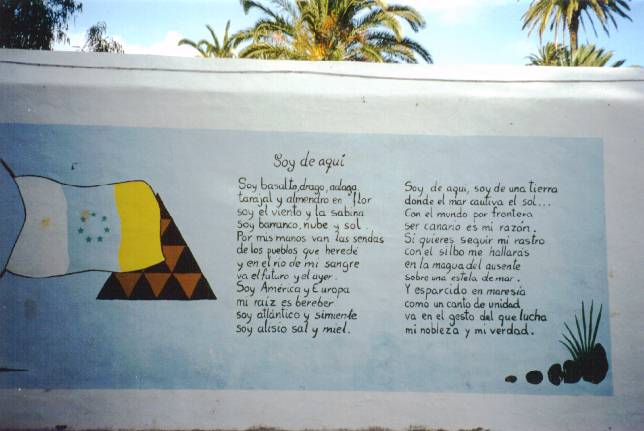 Soy de aquí
Soy basalto, drago, aulaga,
tarajal y almendro en flor
soy el viento y la sabina
Soy barranco, nube y sol.
Por mis manos van las sendas
de los pueblos que heredé
y en el río de mi sangre
va el futuro y el ayer.
Soy América y Europa
mi raíz es bereber
soy atlántico y simiente
soy alisio sal y miel.
Soy de aquí, soy de una tierra
donde el mar cautiva el sol...
Con el mundo por frontera
ser canario es mi razón.
Si quieres seguir mi rastro
con el silbo me hallaras
en la magua del ausente
sobre una estela de mar.
Y esparcido en maresía
como un canto de unidad
va en el gesto del que lucha
mi nobleza y mi verdad.